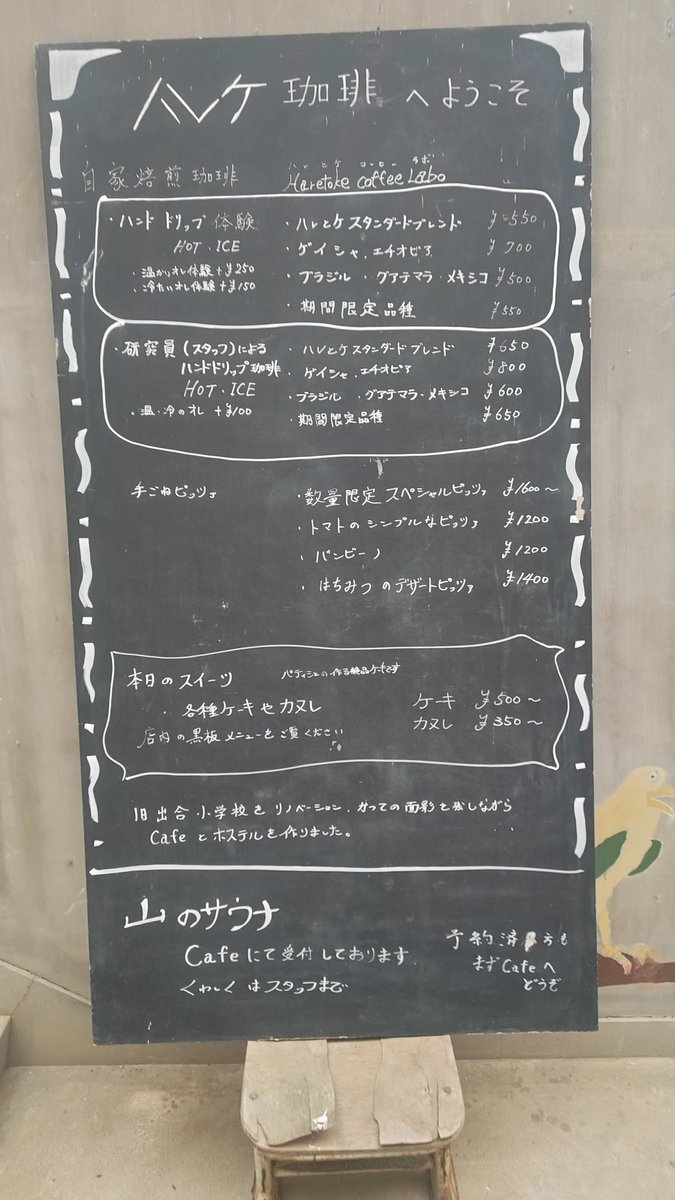 ハレケ 珈琲 へようこそ
自家焙煎珈琲
ハレとケ コーヒー ラボ
Haretoke coffee Labo
・ハンドドリップ体験
HOT・ICE
・温かいオレ体験 +¥250
・冷たいオレ体験 +¥150
・ハレとケスタンダードブレンド ¥550
・ゲイシャ、エチオピア ¥700
・ブラジル・グアテマラ・メキシコ ¥500
・期間限定品種 ¥550
・研究員(スタッフ)による
ハンドドリップ珈琲
HOT・ICE
・温・冷のオレ +¥100
・ハレとケスタンダードブレンド ¥650
・ゲイシャ、エチオピア ¥800
・ブラジル・グアテマラ・メキシコ ¥600
・期間限定品種 ¥650
手ごねピッツァ
・数量限定スペシャルピッツァ ¥1600〜
・トマトのシンプルなピッツァ ¥1200
・バンビーノ ¥1200
・はちみつのデザートピッツァ ¥1400
本日のスイーツ パティシエの作る絶品ケーキです
・各種ケーキやカヌレ
店内の黒板メニューをご覧ください
ケーキ ¥500〜
カヌレ ¥350〜
旧出合小学校をリノベーション、かつての面影を残しながら
Cafeとホステルを作りました。
山のサウナ
Cafeにて受付しております
くわしくはスタッフまで
予約済 方も
まずCafeへ
どうぞ